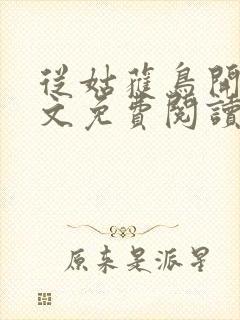 從姑蘇鳥開
文免費閱讀
原来是派星